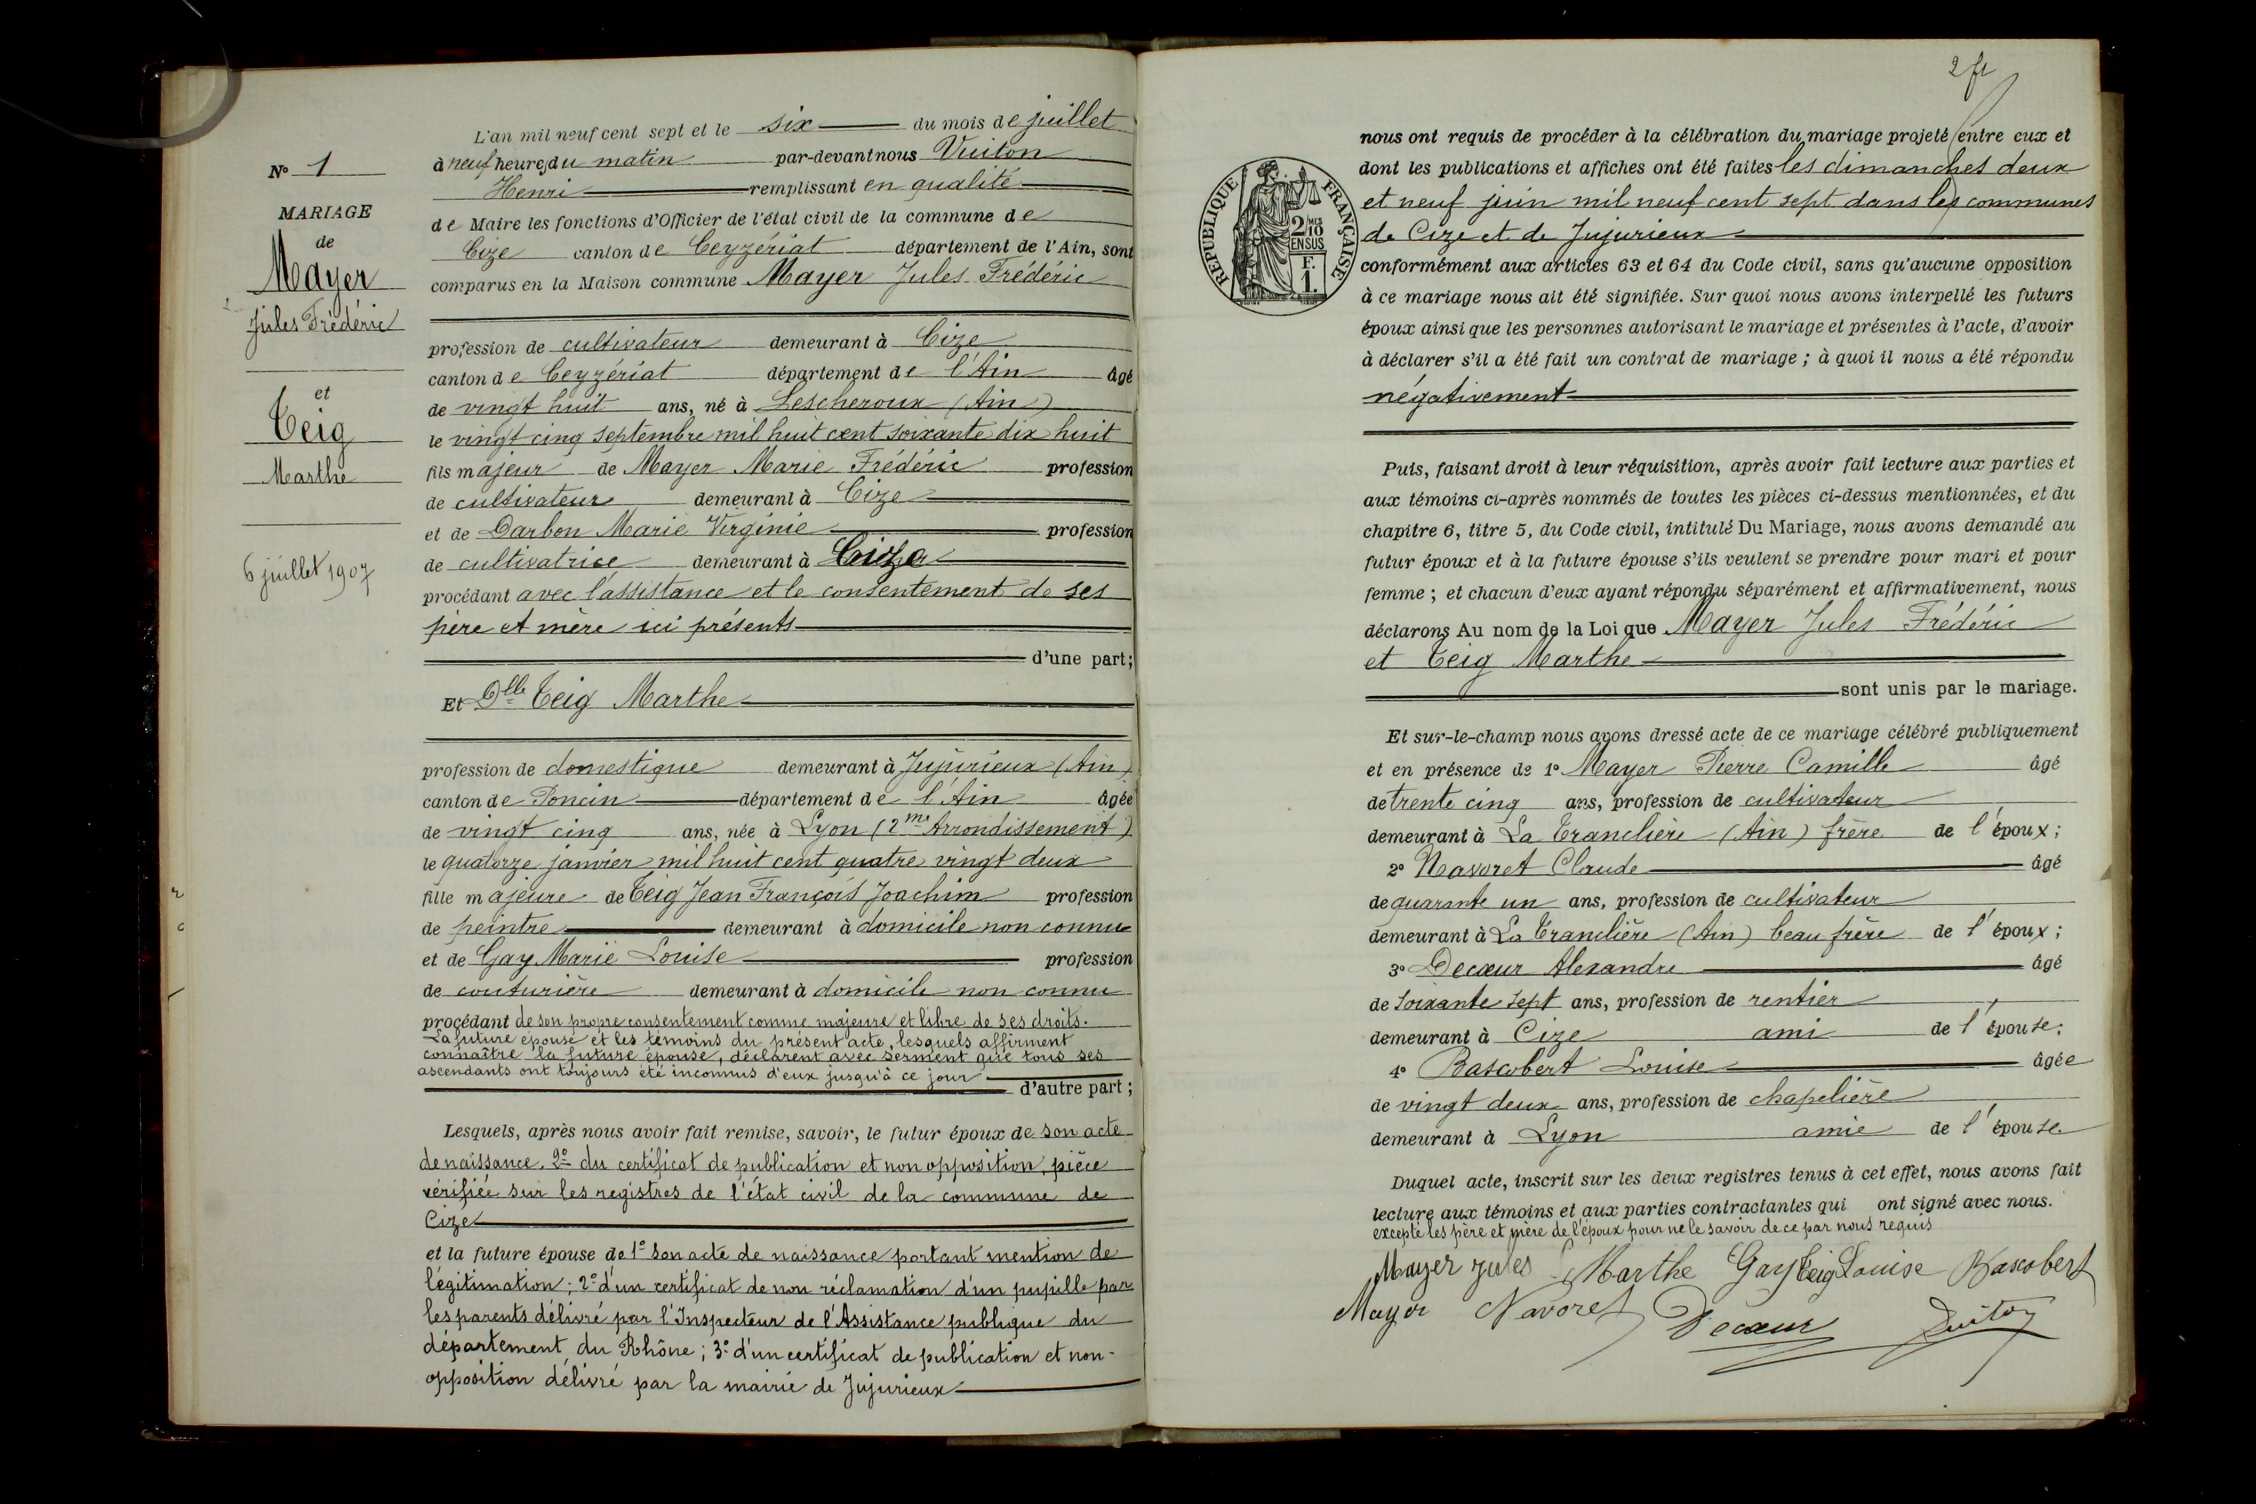 N° 1
MARIAGE
de
Mayer
Jules Frédéric
et
Teig
Marthe
6 juillet 1907
L'an mil neuf cent sept et le six du mois de juillet
à neuf heures du matin par-devant nous Vuiton
Henri remplissant en qualité
de Maire les fonctions d'Officier de l'état civil de la commune de
Cize canton de Ceyzériat département de l'Ain, sont
comparus en la Maison commune Mayer Jules Frédéric
profession de cultivateur demeurant à Cize
canton de Ceyzériat département de l'Ain âgé
de vingt huit ans, né à Lescheroux (Ain)
le vingt cinq septembre mil huit cent soixante dix huit
fils majeur de Mayer Marie Frédéric profession
de cultivateur demeurant à Cize
et de Darbon Marie Virginie profession
de cultivatrice demeurant à Cize
procédant avec l'assistance et le consentement de ses
père et mère ici présents
d'une part;
Et Dlle Teig Marthe
profession de domestique demeurant à Jujurieux (Ain)
canton de Poncin département de l'Ain âgée
de vingt cinq ans, née à Lyon (2me Arrondissement)
le quatorze janvier mil huit cent quatre vingt deux
fille majeure de Teig Jean François Joachim profession
de peintre demeurant à domicile non connu
et de Gay Marie Louise profession
de couturière demeurant à domicile non connu
procédant de son propre consentement comme majeure et libre de ses droits.
La future épouse et les témoins du présent acte, lesquels affirment
connaître la future épouse, déclarent avec serment que tous ses
ascendants ont toujours été inconnus d'eux jusqu'à ce jour
d'autre part;
Lesquels, après nous avoir fait remise, savoir, le futur époux de son acte
de naissance. 2° du certificat de publication et non opposition, pièce
vérifiée sur les registres de l'état civil de la commune de
Cize
et la future épouse de 1° son acte de naissance portant mention de
légitimation; 2° d'un certificat de non réclamation d'un pupille par
les parents délivré par l'Inspecteur de l'Assistance publique du
département du Rhône; 3° d'un certificat de publication et non-
opposition délivré par la mairie de Jujurieux
RÉPUBLIQUE FRANÇAISE
2/10 EN SUS
F. 1.
nous ont requis de procéder à la célébration du mariage projeté entre eux et
dont les publications et affiches ont été faites les dimanches deux
et neuf juin mil neuf cent sept dans les communes
de Cize et de Jujurieux
conformément aux articles 63 et 64 du Code civil, sans qu'aucune opposition
à ce mariage nous ait été signifiée. Sur quoi nous avons interpellé les futurs
époux ainsi que les personnes autorisant le mariage et présentes à l'acte, d'avoir
à déclarer s'il a été fait un contrat de mariage; à quoi il nous a été répondu
négativement
Puis, faisant droit à leur réquisition, après avoir fait lecture aux parties et
aux témoins ci-après nommés de toutes les pièces ci-dessus mentionnées, et du
chapitre 6, titre 5, du Code civil, intitulé Du Mariage, nous avons demandé au
futur époux et à la future épouse s'ils veulent se prendre pour mari et pour
femme; et chacun d'eux ayant répondu séparément et affirmativement, nous
déclarons Au nom de la Loi que Mayer Jules Frédéric
et Teig Marthe
sont unis par le mariage.
Et sur-le-champ nous avons dressé acte de ce mariage célébré publiquement
et en présence de 1° Mayer Pierre Camille âgé
de trente cinq ans, profession de cultivateur
demeurant à La Tranclière (Ain) frère de l'époux;
2° Navoret Claude âgé
de quarante un ans, profession de cultivateur
demeurant à La Tranclière (Ain) beau frère de l'époux;
3° Decœur Alexandre âgé
de soixante sept ans, profession de rentier
demeurant à Cize ami de l'épouse;
4° Bascobert Louise âgée
de vingt deux ans, profession de chapelière
demeurant à Lyon amie de l'épouse
Duquel acte, inscrit sur les deux registres tenus à cet effet, nous avons fait
lecture aux témoins et aux parties contractantes qui ont signé avec nous.
excepté les père et mère de l'époux pour ne le savoir de ce par nous requis
Mayer Jules Marthe Gay Teig Louise Bascobert
Mayer Navoret Decœur Vuiton